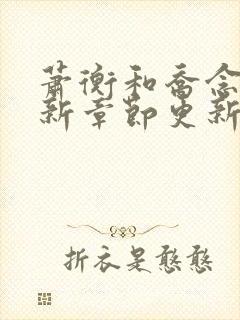 萧衡和乔念
新章节更新
折衣是憨憨